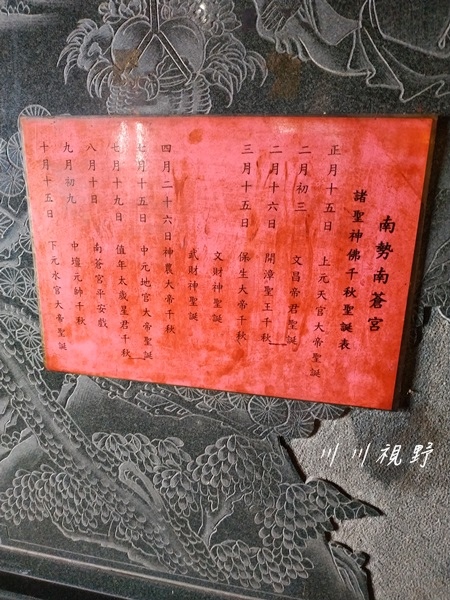 南勢南蒼宮
諸聖神佛千秋聖誕表
正月十五日 上元天官大帝聖誕
二月初三 文昌帝君聖誕
二月十六日 開漳聖王千秋
三月十五日 保生大帝千秋
文財神聖誕
武財神聖誕
四月二十六日 神農大帝千秋
七月十五日 中元地官大帝聖誕
七月十九日 值年太歲星君千秋
八月十日 南蒼宮平安戲
九月初九 中壇元帥千秋
十月十五日 下元水官大帝聖誕
川川視野